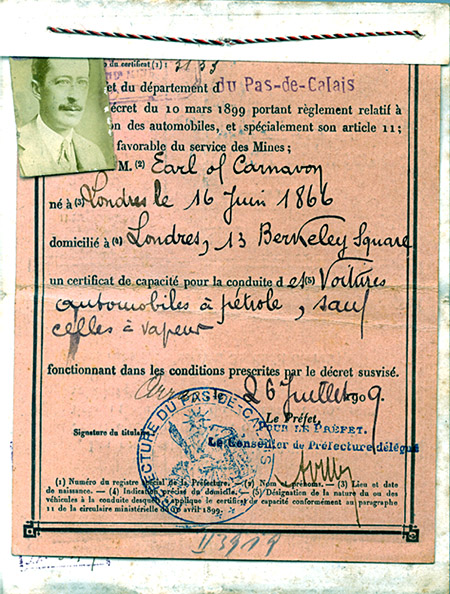 du certificat (1) :
et du département du Pas-de-Calais
écret du 10 mars 1899 portant règlement relatif à
on des automobiles, et spécialement son article 11;
favorable du service des Mines;
M. (2) Earl of Carnavon
né à (3) Londres le 16 Juin 1866
domicilié à (4) Londres, 13 Berkeley Square
un certificat de capacité pour la conduite d es (5) Voitures
automobiles à pétrole, sauf
celles à vapeur
fonctionnant dans les conditions prescrites par le décret susvisé.
26 Juillet 1909.
Le Préfet,
POUR LE PRÉFET.
Le Conseiller de Préfecture délégué
Signature du titulaire
PRÉFECTURE DU PAS-DE-CALAIS
(1) Numéro du registre spécial de la Préfecture. — (2) Nom et prénoms. — (3) Lieu et date
de naissance. — (4) Indication précise du domicile. — (5) Désignation de la nature du ou des
véhicules à la conduite desquels s'applique le certificat de capacité conformément au paragraphe
11 de la circulaire ministérielle du 10 avril 1899.